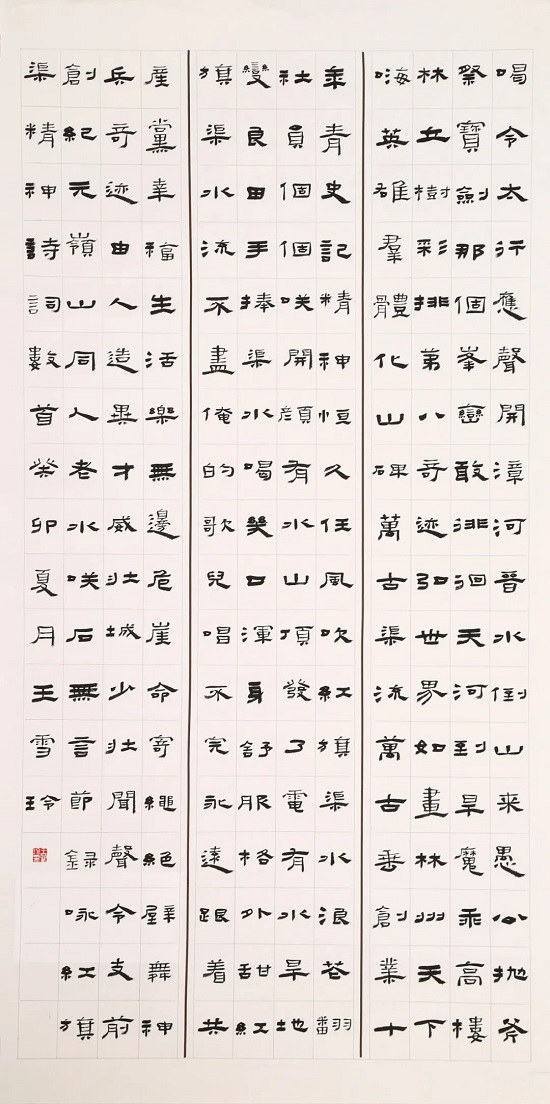 喝令太行應聲開漳河晉水倒山來愚公拋斧
祭寶劍那個峯巒敢徘徊天河到旱魔乘高樓
林立樹彩排第八奇迹弘世界如畫林州天下
嗨英雄羣體化山碑萬古渠流萬古垂創業十
年青史記精神恒久任風吹紅旗渠水浪花翻
社員個個咲開顔有水山頂發了電有水旱地
變良田手捧渠水喝口渾身舒服格外甜紅
旗渠水流不盡俺的歌兒唱不完永遠跟着共
產黨幸福生活樂無邊危崖命寄繩絕壁舞神
兵奇迹由人造異才威壯城少壯聞聲令支前
創紀元嶺山同人老水咲石無言節録咏紅旗
渠精神詩詞數首癸卯夏月王雪玲